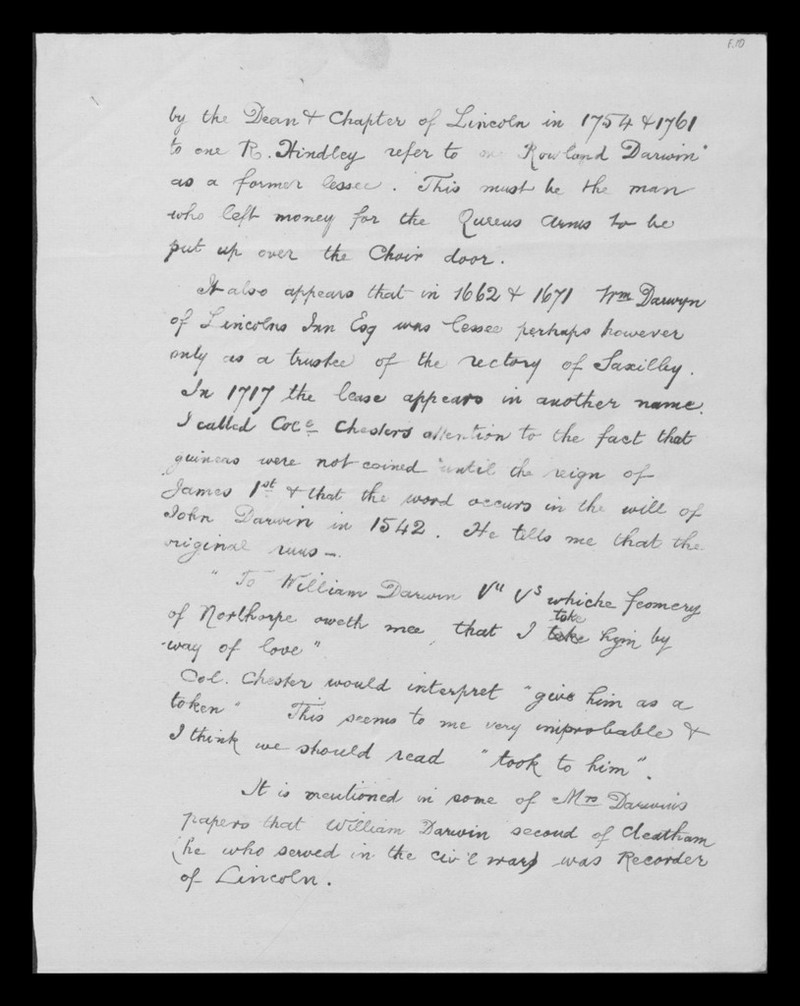 f.10
by the Dean & Chapter of Lincoln in 1754 & 1761
to one R. Hindley refer to Rowland Darwin"
as a former lessee. This must be the man
who left money for the Queens Arms to be
put up over the Choir door.
It also appears that in 1662 & 1671 Wm Darwyn
of Lincolns Inn Esq was lessee perhaps however
only as a trustee of the rectory of Saxilby.
In 1717 the lease appears in another name.
I called Chesters attention to the fact that
guineas were not coined until the reign of
James 1st & that the word occurs in the will of
John Darwin in 1542. He tells me that the
original runs —.
"To William Darwin Vli Vs whiche
take
of Northorpe oweth mee, that I take hym by
way of love"
Col. Chester would interpret "give him as a
token" This seems to me very improbable &
I think we should read "took to him".
It is mentioned in some of Mrs Darwin's
papers that William Darwin second of Cleatham
(he who served in the civil war) was Recorder
of Lincoln.